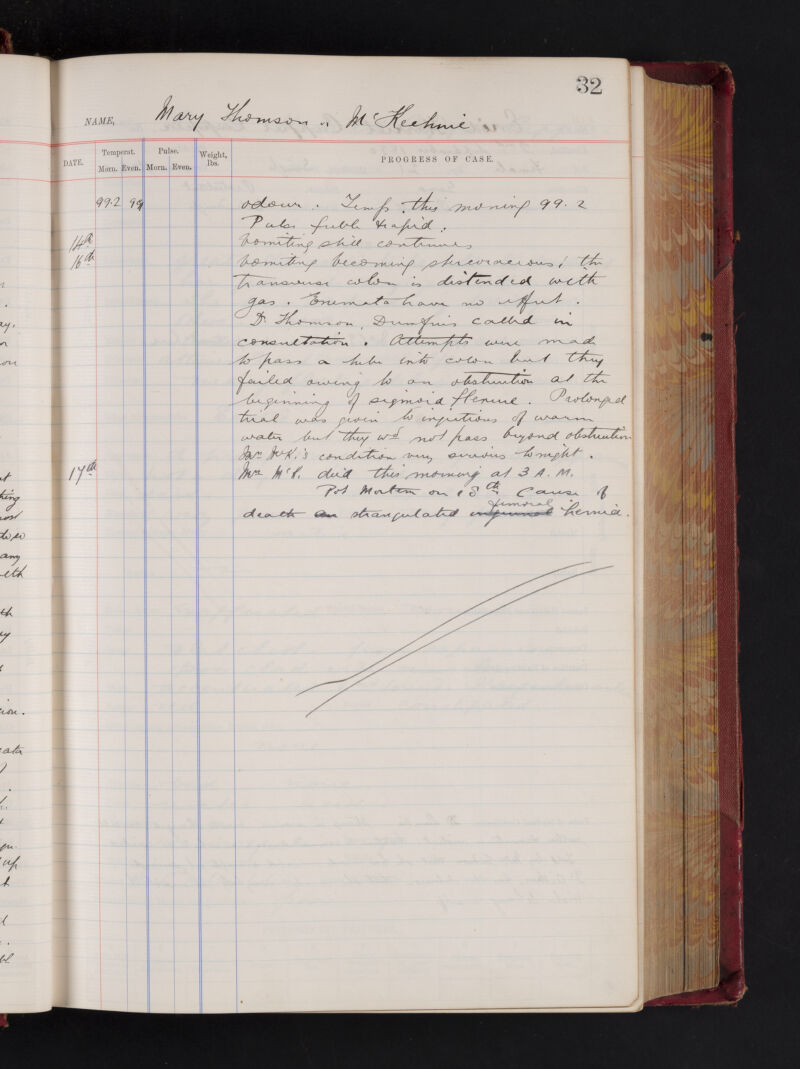 32
NAME, Mary Thomson or McKechnie
DATE. Temperat. Pulse. Weight, lbs. PROGRESS OF CASE.
Morn. Even. Morn. Even.
99.2 99 odour. Temp. this morning 99.2
Pulse feeble & rapid.
14th Vomiting still continues
16th Vomiting becoming stercoraceous, the
transverse colon is distended with
gas. Enemata have no effect.
Dr. Thomson, Dumfries called in
consultation. Attempts were made
to pass a tube into colon but they
failed owing to an obstruction at the
beginning of sigmoid flexure. Prolonged
trial was given to injections of warm
water but they wd not pass beyond obstruction
Mrs McK.'s condition very serious tonight.
17th Mrs McK. died this morning at 3 A.M.
Post Mortem on 18th Cause of
femoral
death an strangulated inguinal hernia.